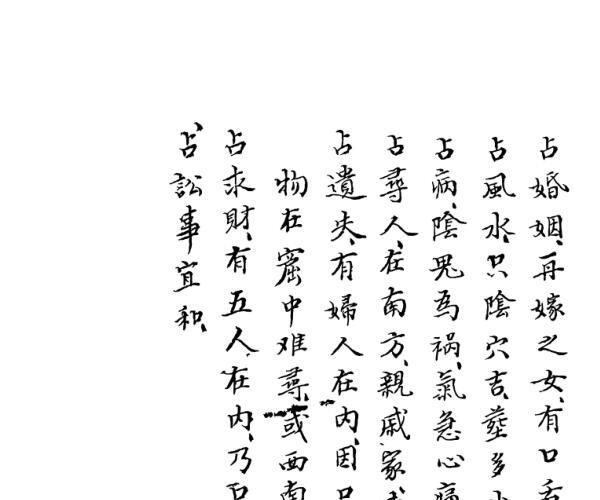 占婚姻、再嫁之女、有口舌
占風水、只陰穴吉、塟多
占病、陰鬼為禍、氣急心痛
占尋人、在南方、親戚家
占遺失、有婦人在内、因口
物在窟中难尋、或西南
占求財、有五人、在内、乃
占訟事宜和、